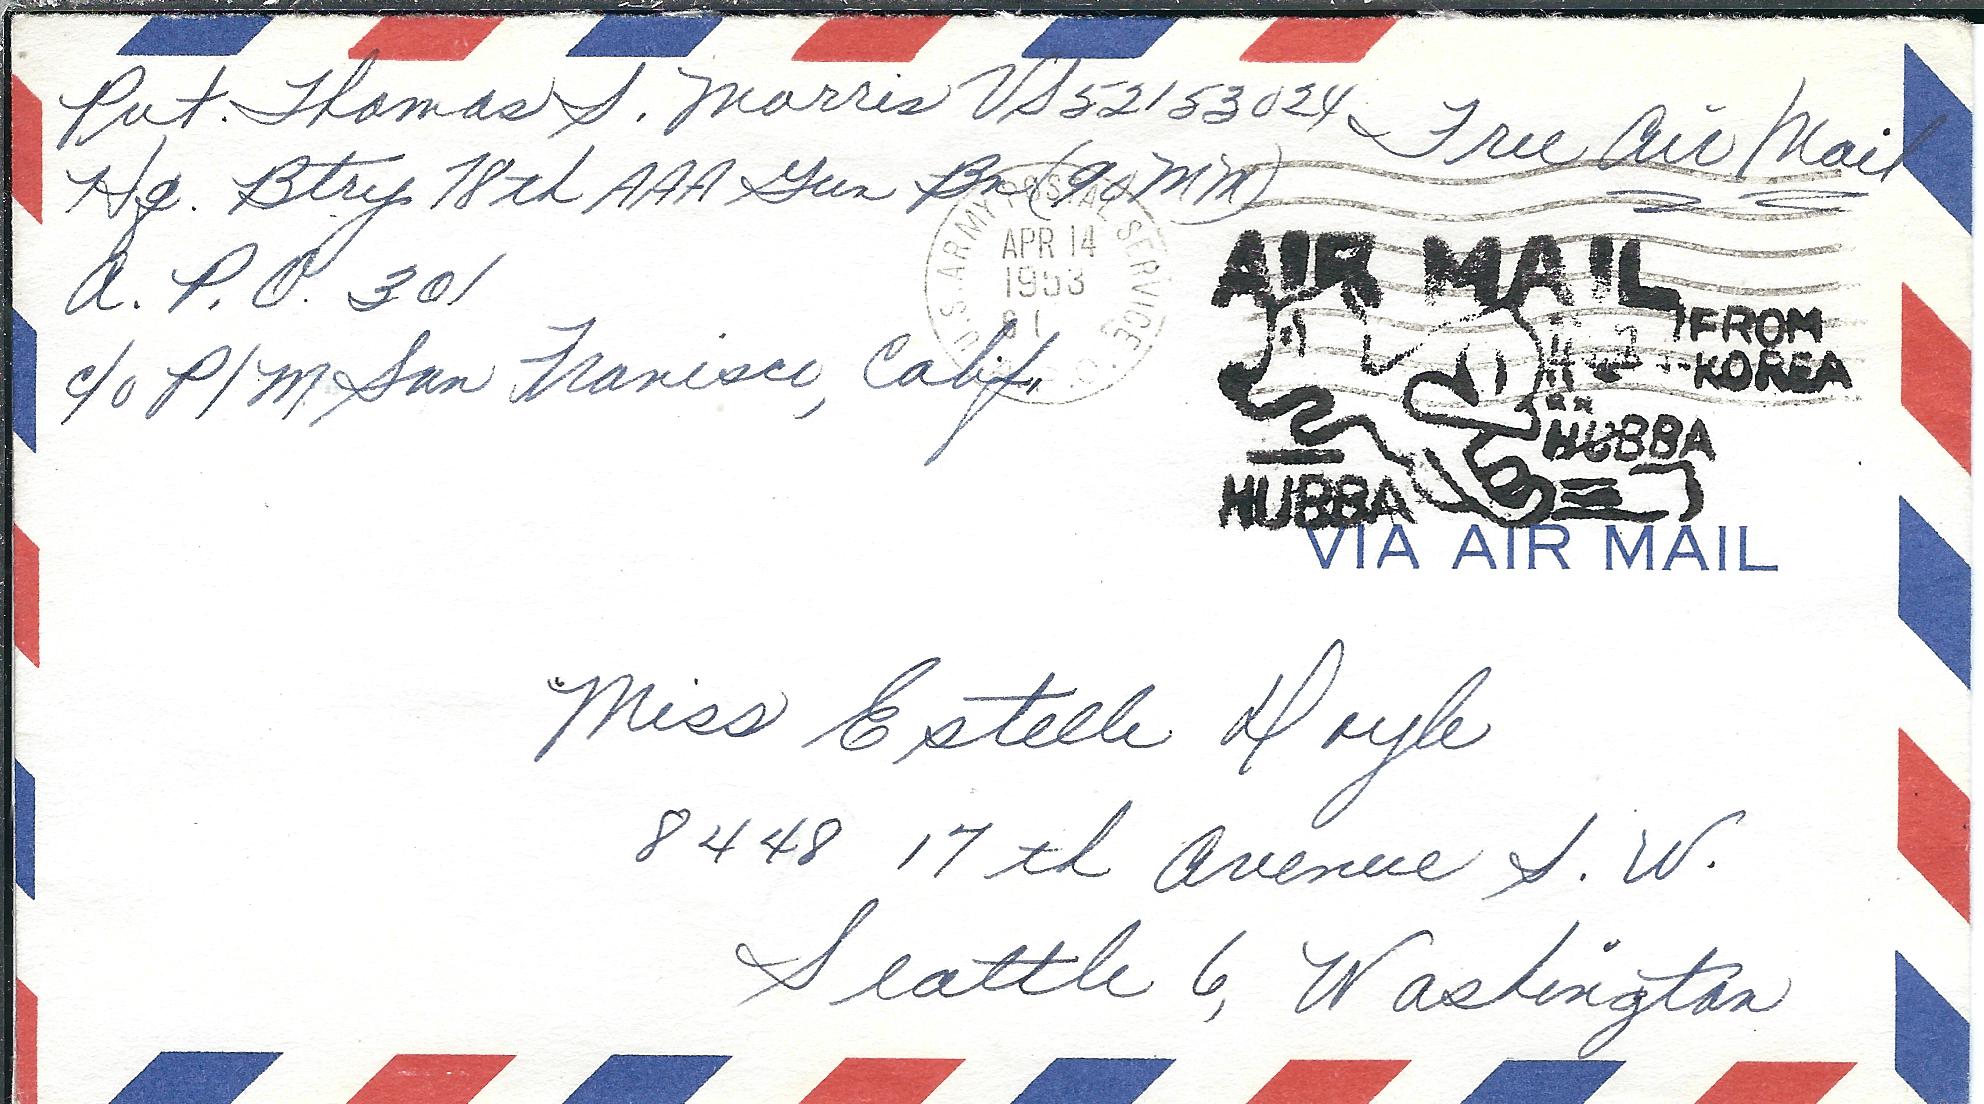 Pvt. Thomas S. Morris US52153024
Free Air Mail
Hq. Btry 78th AAA Gun Bn (90MM)
A. P. O. 301
c/o P/M San Francisco, Calif.
U.S. ARMY POSTAL SERVICE
APR 14
1953
AIR MAIL
FROM
KOREA
HUBBA
HUBBA
VIA AIR MAIL
Miss Estelle Doyle
8448 17th Avenue S.W.
Seattle 6, Washington